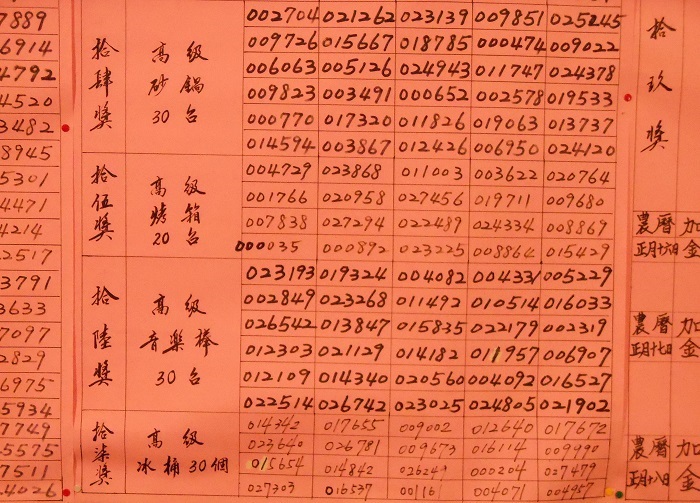 拾肆獎 高級砂鍋 30台
002704 021262 023139 009851
009726 015667 018785 000474 009022
006063 005126 024943 011747 024378
009823 003491 000652 002578 019533
000770 017320 011826 019063 013737
014594 003867 012426 006950 024120
拾伍獎 高級烤箱 20台
004729 023868 011003 003622 020764
001766 020958 027456 019711 009680
007838 027294 022489 024334 008869
000035 000892 023225 008864 015429
拾陸獎 高級音樂棒 30台
023193 019324 004082 004331 005229
002849 023268 011492 010514 016033
026542 013847 015835 022179 002319
012303 021129 014182 011957 006907
012109 014340 020560 004092 016527
022514 026742 023025 024805 021902
拾柒獎 高級冰桶30個
014342 017655 009002 012640 017672
023640 026781 009673 016114 009990
015654 014842 026249 000204 027479
027303 016537 00116 004071 004957
7889
6914
4792
4520
3482
8945
5301
4471
4214
22517
3791
3633
7097
2829
6975
5934
7749
5575
7511
4026
拾玖獎
農曆正月十六日 加金
農曆正月十七日 加金
農曆正月十八日 加金